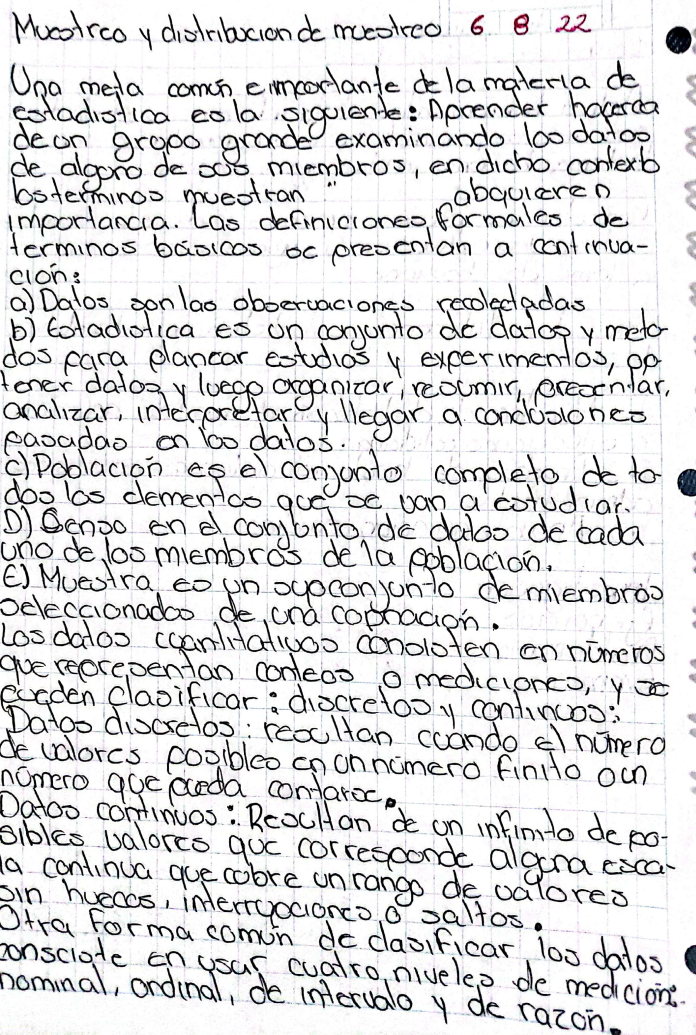 Muestreo y distribucion de muestreo 6 8 22
Una meta comun e importante de la materia de
estadistica es la siguiente: Aprender hacerca
de un grupo grande examinando los datos
de alguno de sus miembros, en dicho contexto
los terminos muestran " abquieren
importancia. Las definiciones formales de
terminos básicos se presentan a continua-
ción:
a) Datos son las observaciones recolectadas
b) Estadistica es un conjunto de datos y meto
dos para planear estudios y experimentos, op
tener datos y luego organizar, resumir, presentar,
analizar, interpretar y llegar a conclusiones
pasadas en los datos.
c) Población es el conjunto completo de to
dos los elementos que se van a estudiar.
D) Censo en el conjunto de datos de cada
uno de los miembros de la población.
E) Muestra es un supconjunto de miembros
seleccionados de una
Los datos cuantitativos consisten en números
que representan conteos o mediciones, y se
pueden clasificar: discretos y continuos:
Datos discretos: resultan cuando el número
de valores posibles en un número finito o un
número que pueda contarse.
Datos continuos: Resultan de un infinito de po-
sibles valores que corresponde alguna esca-
la continua que cobre un rango de valores
sin huecos, interrupciones o saltos.
Otra forma común de clasificar los datos
consciste en usar cuatro niveles de medición:
nominal, ordinal, de intervalo y de razón.